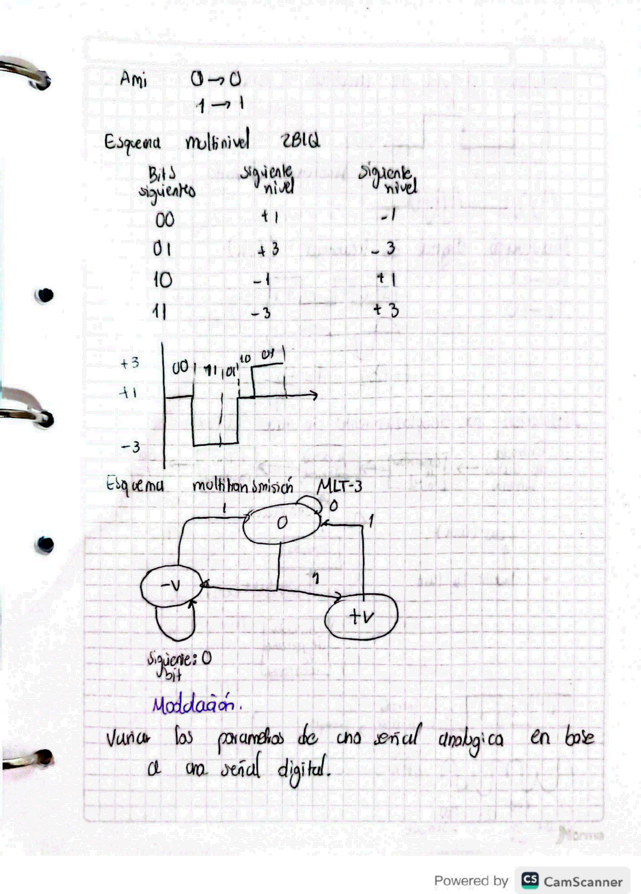 Ami 0→0
1→1
Esquema multinivel 2B1Q
Bits siguientes siguiente nivel siguiente nivel
00 +1 -1
01 +3 -3
10 -1 +1
11 -3 +3
+3 00 11 01 10 01
+1
-3
Esquema multitransmisión MLT-3
1 0 0 1
-V 1 +V
Siguiente: 0
bit
Modulación.
Variar los parametros de una señal analogica en base
a una señal digital.
Norma
Powered by CS CamScanner